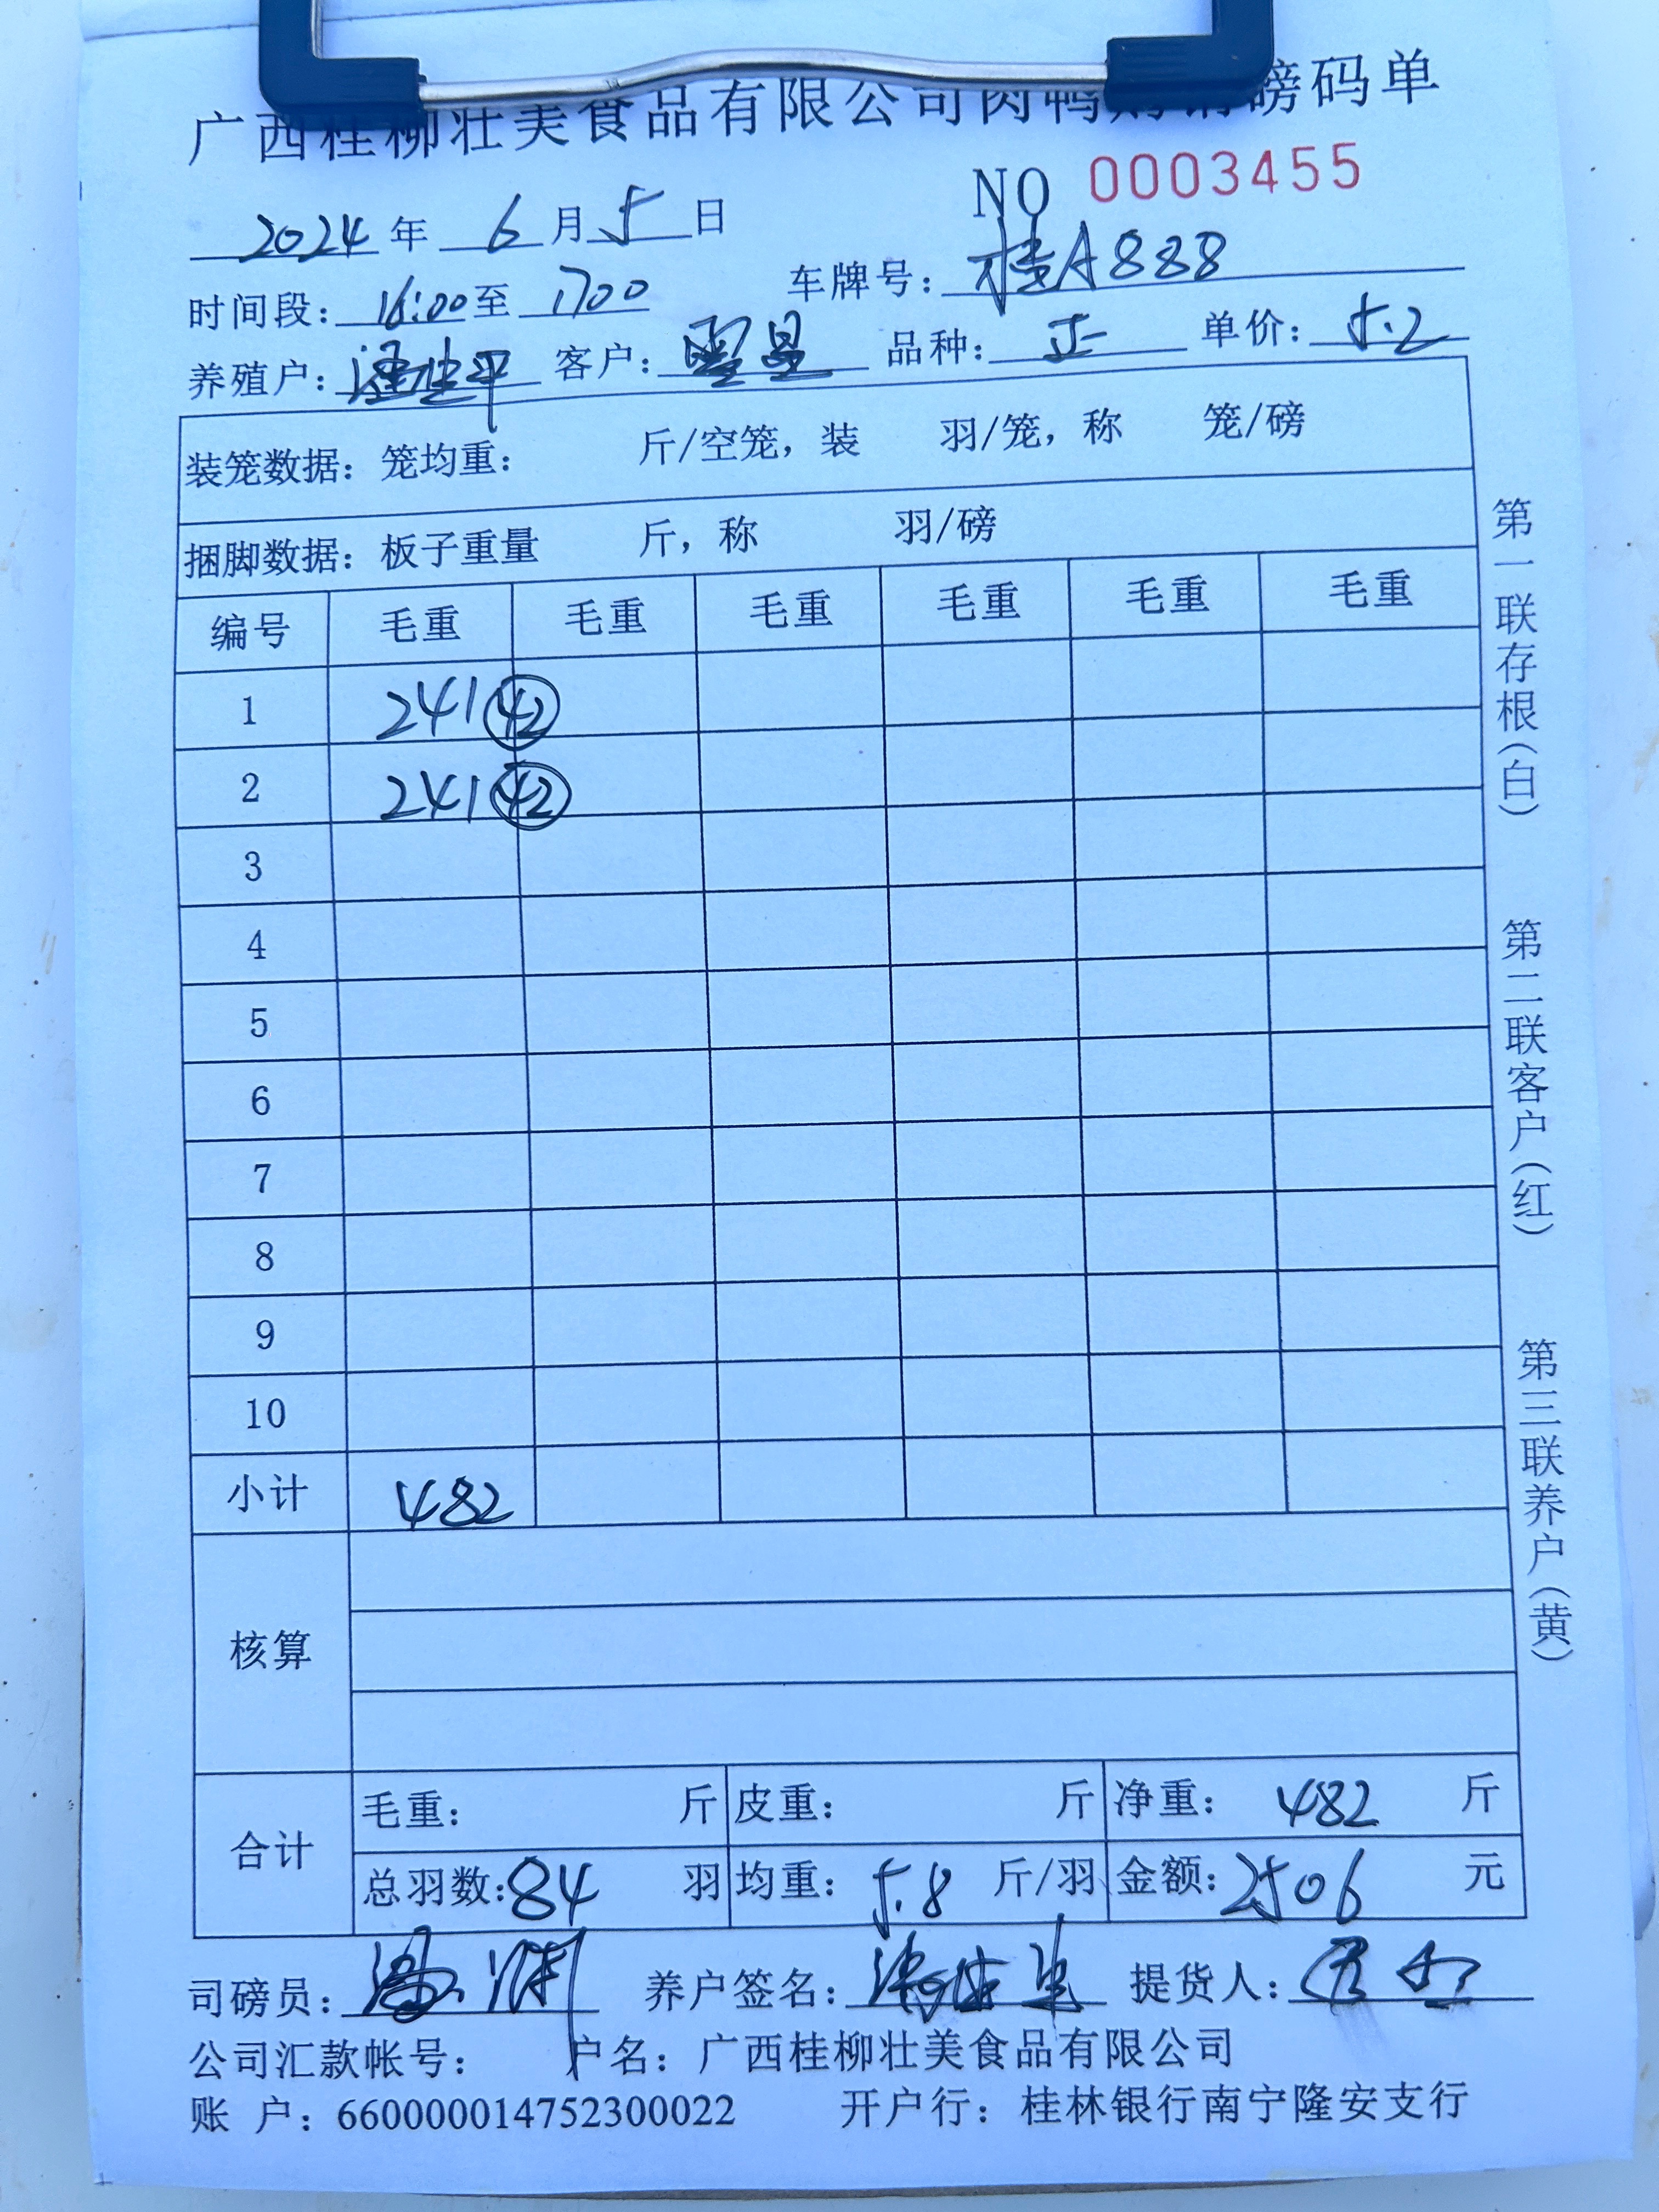 广西桂柳壮美食品有限公司肉鸭购销磅码单
NO 0003455
2024年 6月 5日
时间段: 16:00至 1700 车牌号: 桂A888
养殖户: 客户: 品种: 正 单价: 5.2
装笼数据: 笼均重: 斤/空笼, 装 羽/笼, 称 笼/磅
捆脚数据: 板子重量 斤, 称 羽/磅
编号 毛重 毛重 毛重 毛重 毛重 毛重
1 241 42
2 241 42
3
4
5
6
7
8
9
10
小计 482
核算
合计 毛重: 斤 皮重: 斤 净重: 482 斤
总羽数: 84 羽 均重: 5.8 斤/羽 金额: 2506 元
司磅员: 养户签名: 提货人:
公司汇款帐号: 户名: 广西桂柳壮美食品有限公司
账 户: 660000014752300022 开户行: 桂林银行南宁隆安支行
第一联存根(白) 第二联客户(红) 第三联养户(黄)